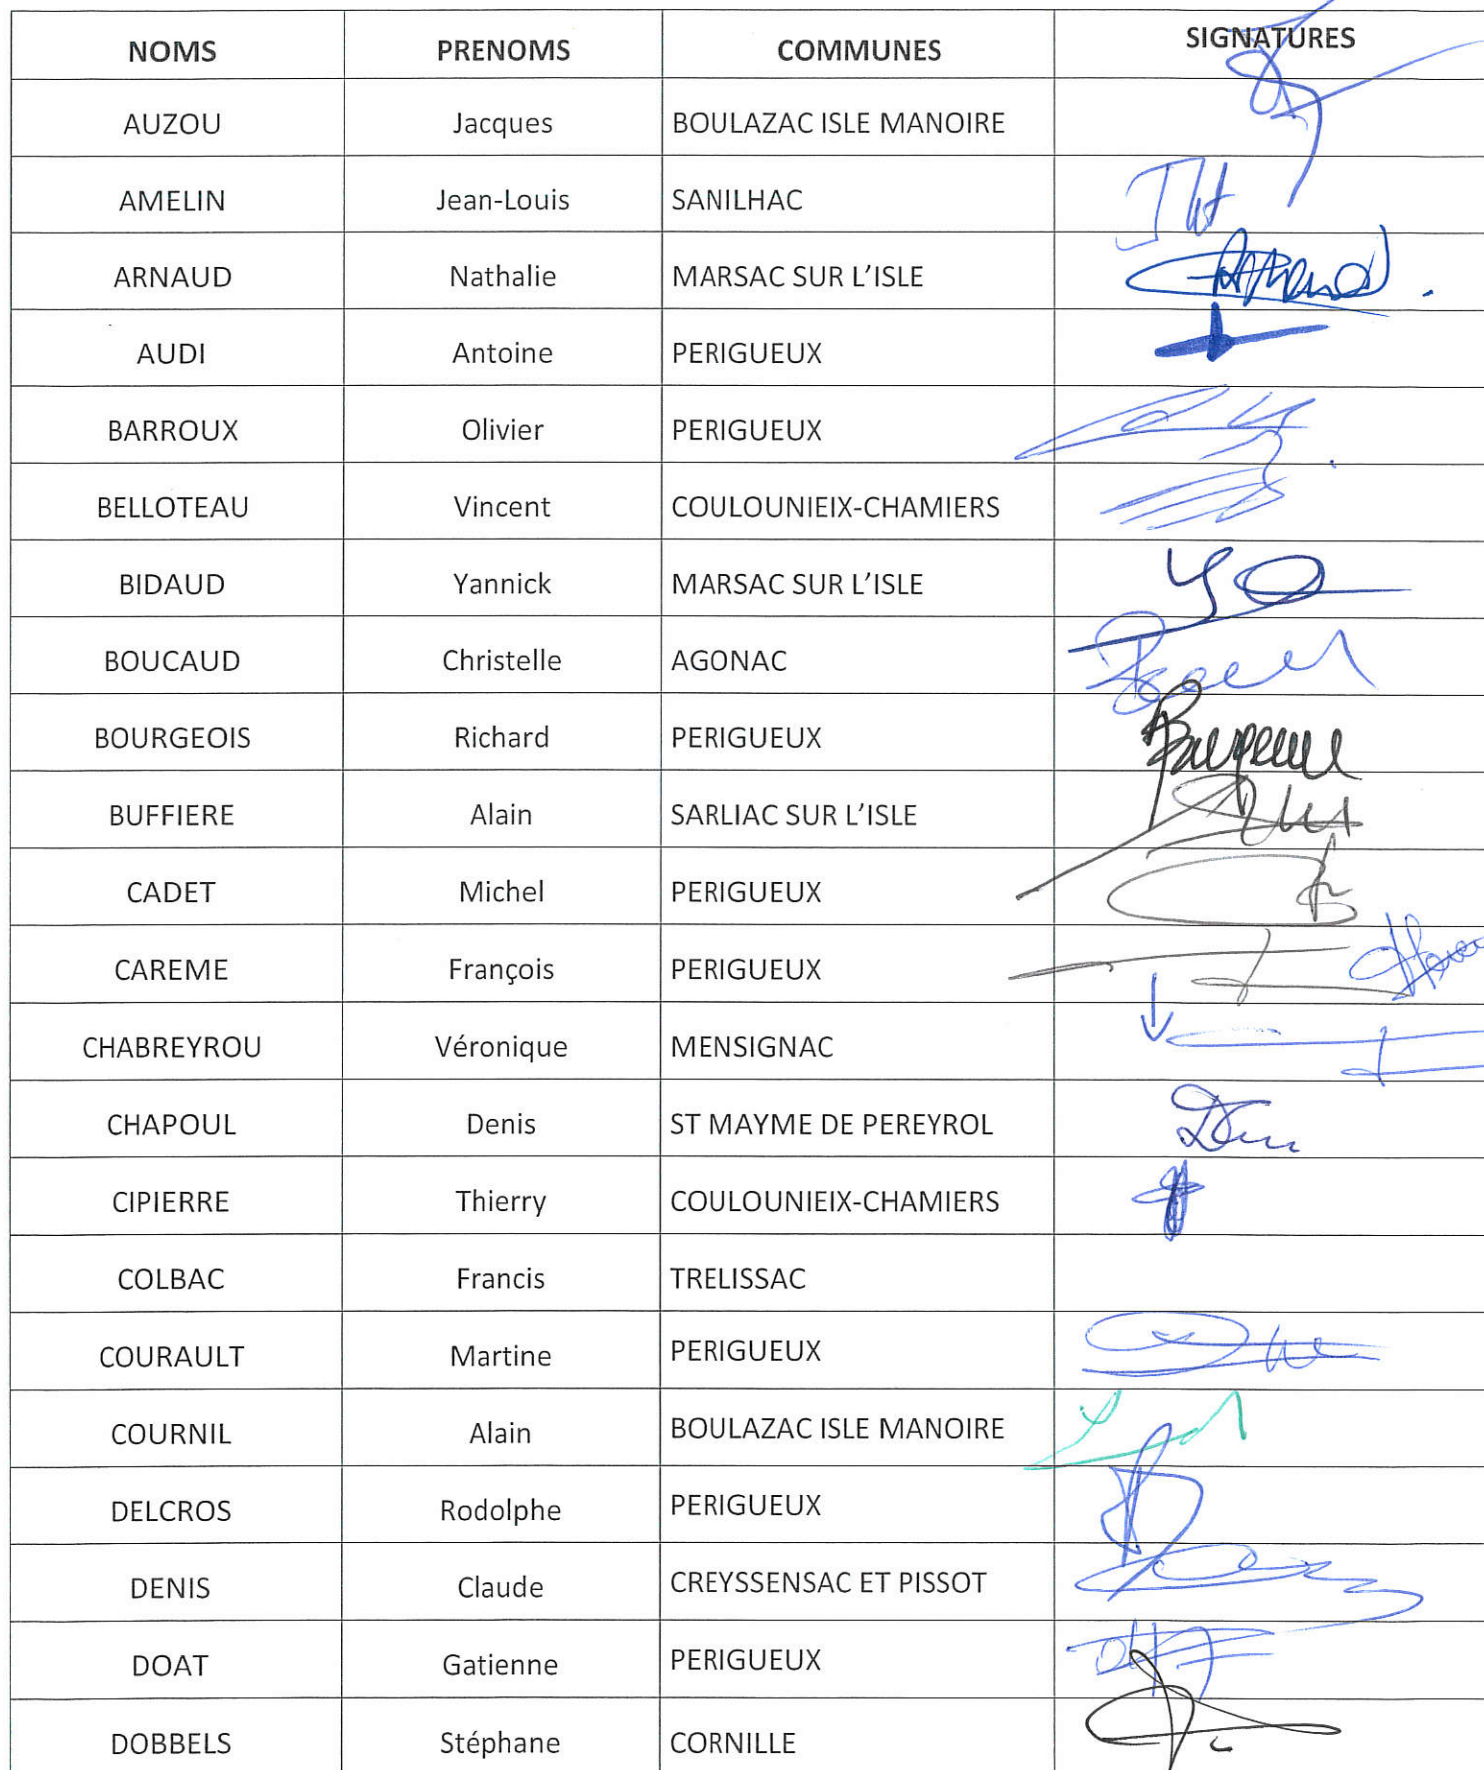 NOMS PRENOMS COMMUNES SIGNATURES
AUZOU Jacques BOULAZAC ISLE MANOIRE
AMELIN Jean-Louis SANILHAC
ARNAUD Nathalie MARSAC SUR L’ISLE
AUDI Antoine PERIGUEUX
BARROUX Olivier PERIGUEUX
BELLOTEAU Vincent COULOUNIEIX-CHAMIERS
BIDAUD Yannick MARSAC SUR L’ISLE
BOUCAUD Christelle AGONAC
BOURGEOIS Richard PERIGUEUX
BUFFIERE Alain SARLIAC SUR L’ISLE
CADET Michel PERIGUEUX
CAREME François PERIGUEUX
CHABREYROU Véronique MENSIGNAC
CHAPOUL Denis ST MAYME DE PEREYROL
CIPIERRE Thierry COULOUNIEIX-CHAMIERS
COLBAC Francis TRELISSAC
COURAULT Martine PERIGUEUX
COURNIL Alain BOULAZAC ISLE MANOIRE
DELCROS Rodolphe PERIGUEUX
DENIS Claude CREYSSENSAC ET PISSOT
DOAT Gatienne PERIGUEUX
DOBBELS Stéphane CORNILLE